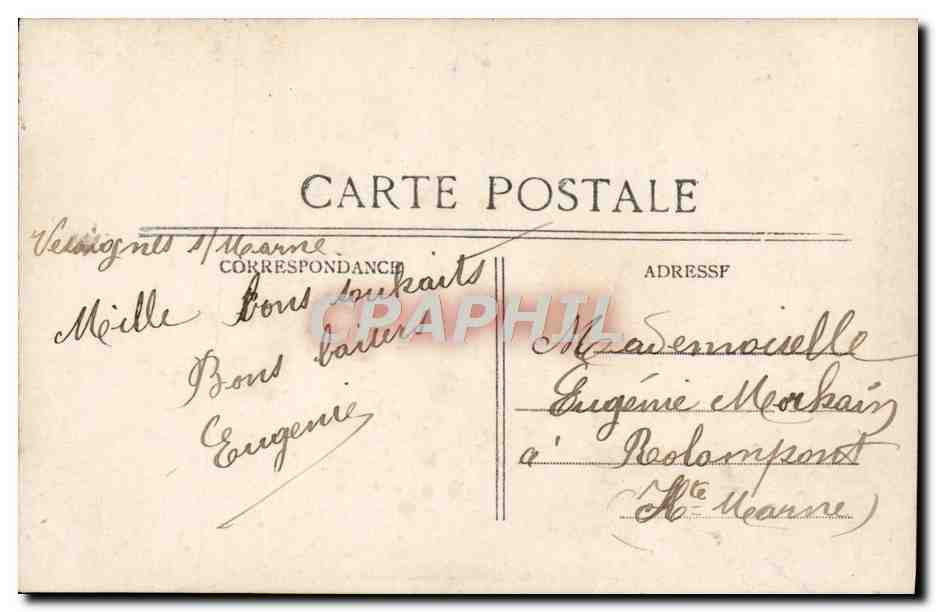 CARTE POSTALE
Vesaignes s/Marne.
CORRESPONDANCE
Mille bons souhaits
Bons baisers
Eugenie
ADRESSE
Mademoiselle
Eugénie Morhain
à Rolampont
(Hte Marne)
CPAPHIL